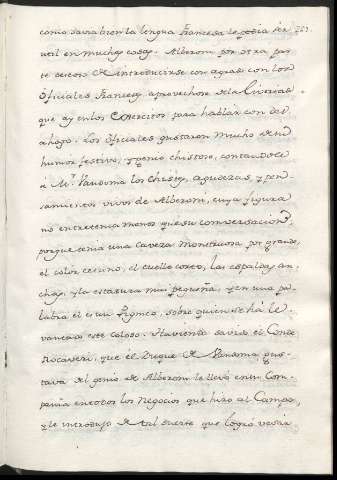 como savia bien la lengua Francesa le podia ser
util en muchas cosas. Alberoni por otra par
te deseoso de introducirse con agrado con los
Oficiales Franceses aprovechose de la Livertad
que ay en los Exercitos para hablar con des
ahogo. Los Oficiales gustaron mucho de su
humor festivo, y genio chistoso, contandole
à Mr. Vandoma los chistes, agudezas, y pen
samientos vivos de Alberoni, cuya figura
no entretenia menos que su conversacion,
porque tenia una caveza monstruosa por grande,
el color cetrino, el cuello corto, las espaldas an
chas, y la estatura mui pequeña, y en una pa
labra él es un Pigmeo, sobre quien se há le
vantado este coloso. Haviendo savido el Conde
Rocaveri, que el Duque de Vandoma gus
tava del genio de Alberoni le llevó en su Com
pañia en todos los Negocios que hizo al Campo,
y le introdujo de tal suerte que logró